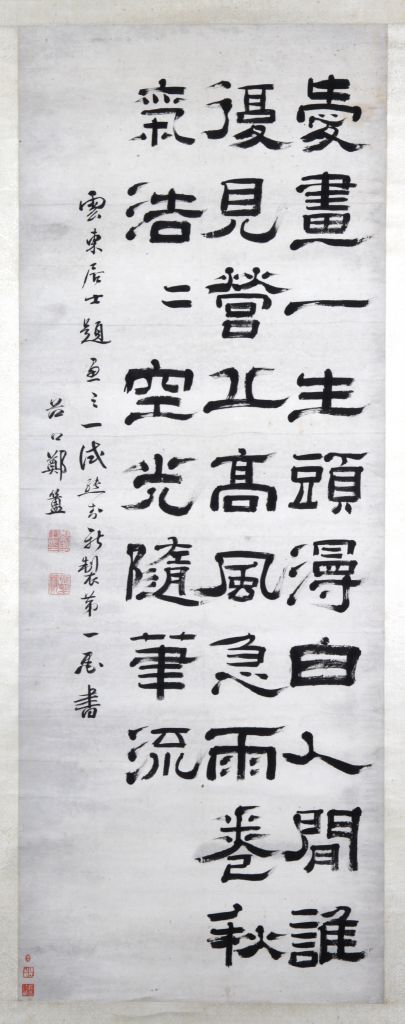 愛畫一生頭淂白人間誰
復見營丘高風急雨卷秋
氣浩〻空光隨筆流
雲東居士題画之一試新製苐一書
谷口鄭簠